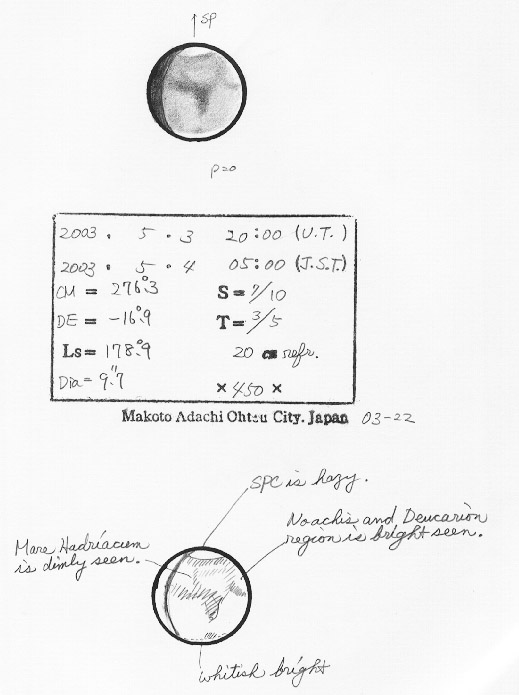 ↑ SP
P=0
2003 . 5 . 3 20:00 (U.T.)
2003 . 5 . 4 05:00 (J.S.T.)
CM = 276°.3 S = 7/10
DE = -16°.9 T = 3/5
Ls = 178°.9 20 cm refr.
Dia = 9".7 × 450 ×
Makoto Adachi Ohtsu City. Japan 03-22
SPC is hazy.
Noachis and Deucarion
region is bright seen.
Mare Hadriacum
is dimly seen.
whitish bright